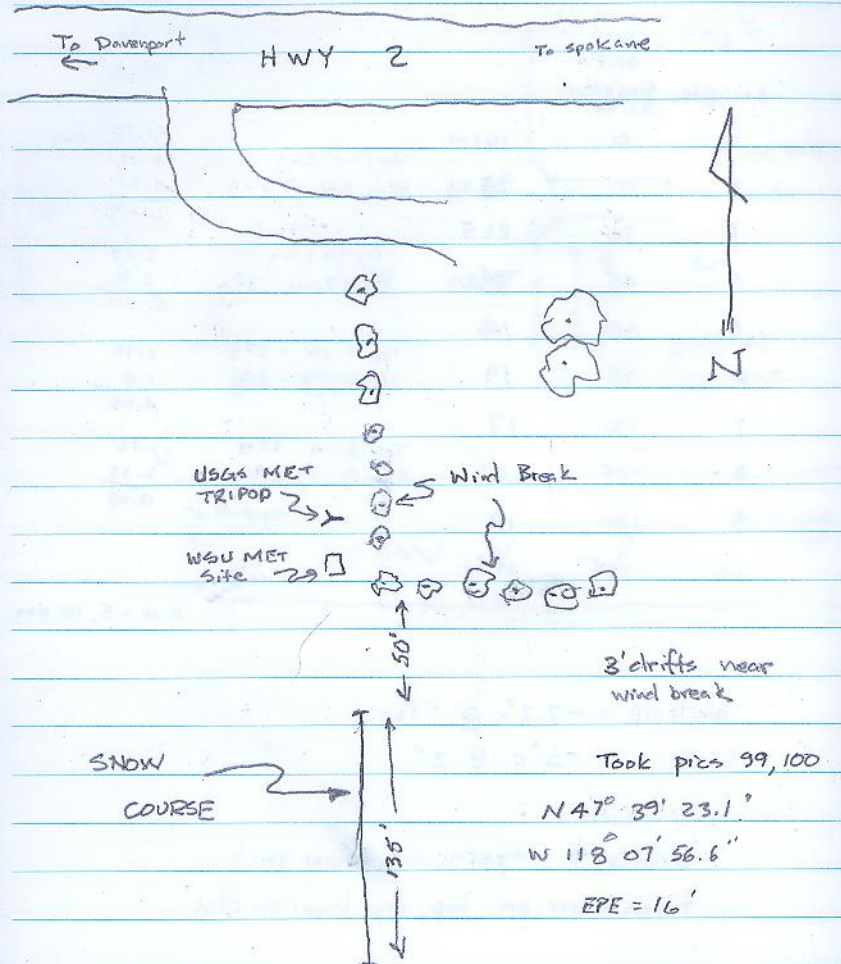 To Davenport
HWY 2
To Spokane
N
USGS MET
TRIPOD
Wind Break
WSU MET
Site
50'
3' drifts near
wind break
SNOW
COURSE
135'
Took pics 99,100
N 47° 39' 23.1"
W 118° 07' 56.6"
EPE = 16'